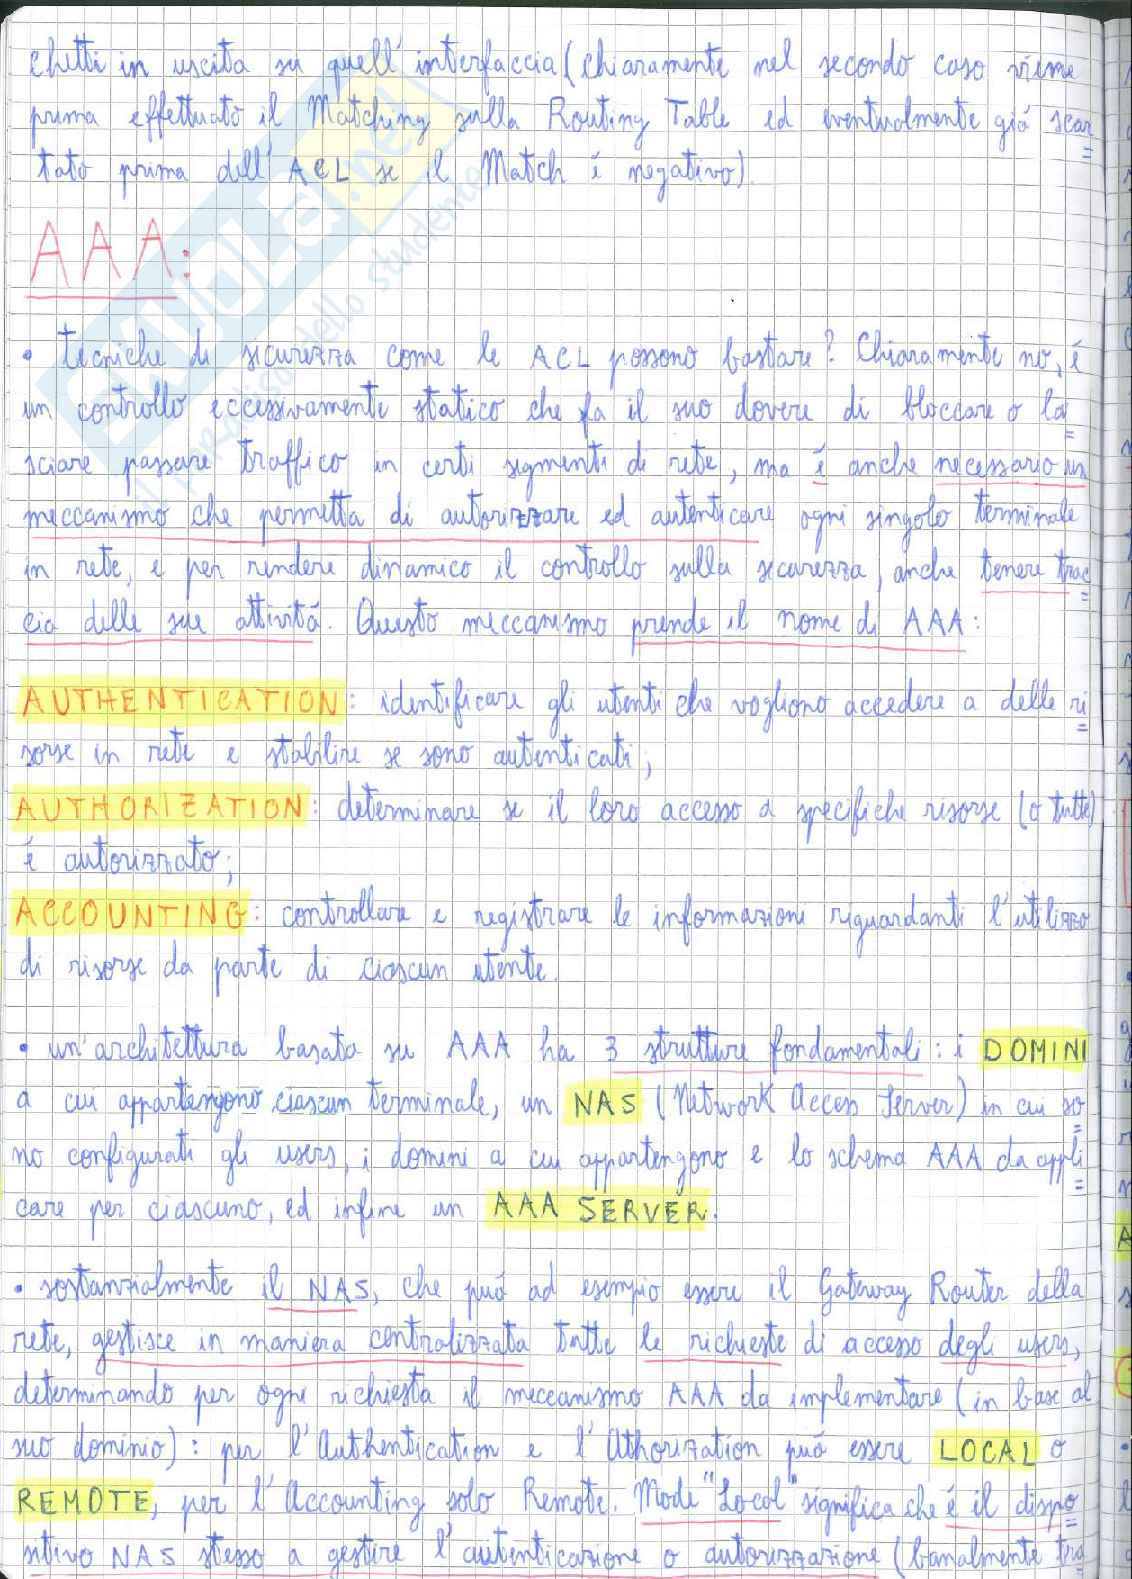 chetti in uscita su quell'interfaccia (chiaramente nel secondo caso viene
prima effettuato il Matching sulla Routing Table ed eventualmente giá scar
tato prima dell'ACL se il Match é negativo).
AAA:
• tecniche di sicurezza come le ACL possono bastare? Chiaramente no, é
un controllo eccessivamente statico che fa il suo dovere di bloccare o la
sciare passare traffico in certi segmenti di rete, ma é anche necessario un
meccanismo che permetta di autorizzare ed autenticare ogni singolo terminale
in rete, e per rendere dinamico il controllo sulla sicurezza, anche tenere trac
cia delle sue attivitá. Questo meccanismo prende il nome di AAA:
AUTHENTICATION: identificare gli utenti che vogliono accedere a delle ri
sorse in rete e stabilire se sono autenticati;
AUTHORIZATION: determinare se il loro accesso a specifiche risorse (o tutte)
é autorizzato;
ACCOUNTING: controllare e registrare le informazioni riguardanti l'utilizzo
di risorse da parte di ciascun utente.
• un'architettura basata su AAA ha 3 strutture fondamentali: i DOMINI
a cui appartengono ciascun terminale, un NAS (Network Access Server) in cui so
no configurati gli users, i domini a cui appartengono e lo schema AAA da appli
care per ciascuno, ed infine un AAA SERVER.
• sostanzialmente il NAS, che puó ad esempio essere il Gateway Router della
rete, gestisce in maniera centralizzata tutte le richieste di accesso degli users,
determinando per ogni richiesta il meccanismo AAA da implementare (in base al
suo dominio): per l'Authentication e l'Athorization puó essere LOCAL o
REMOTE, per l'Accounting solo Remote. Mode "Local" significa che é il dispo
sitivo NAS stesso a gestire l'autenticazione o autorizzazione (banalmente tra